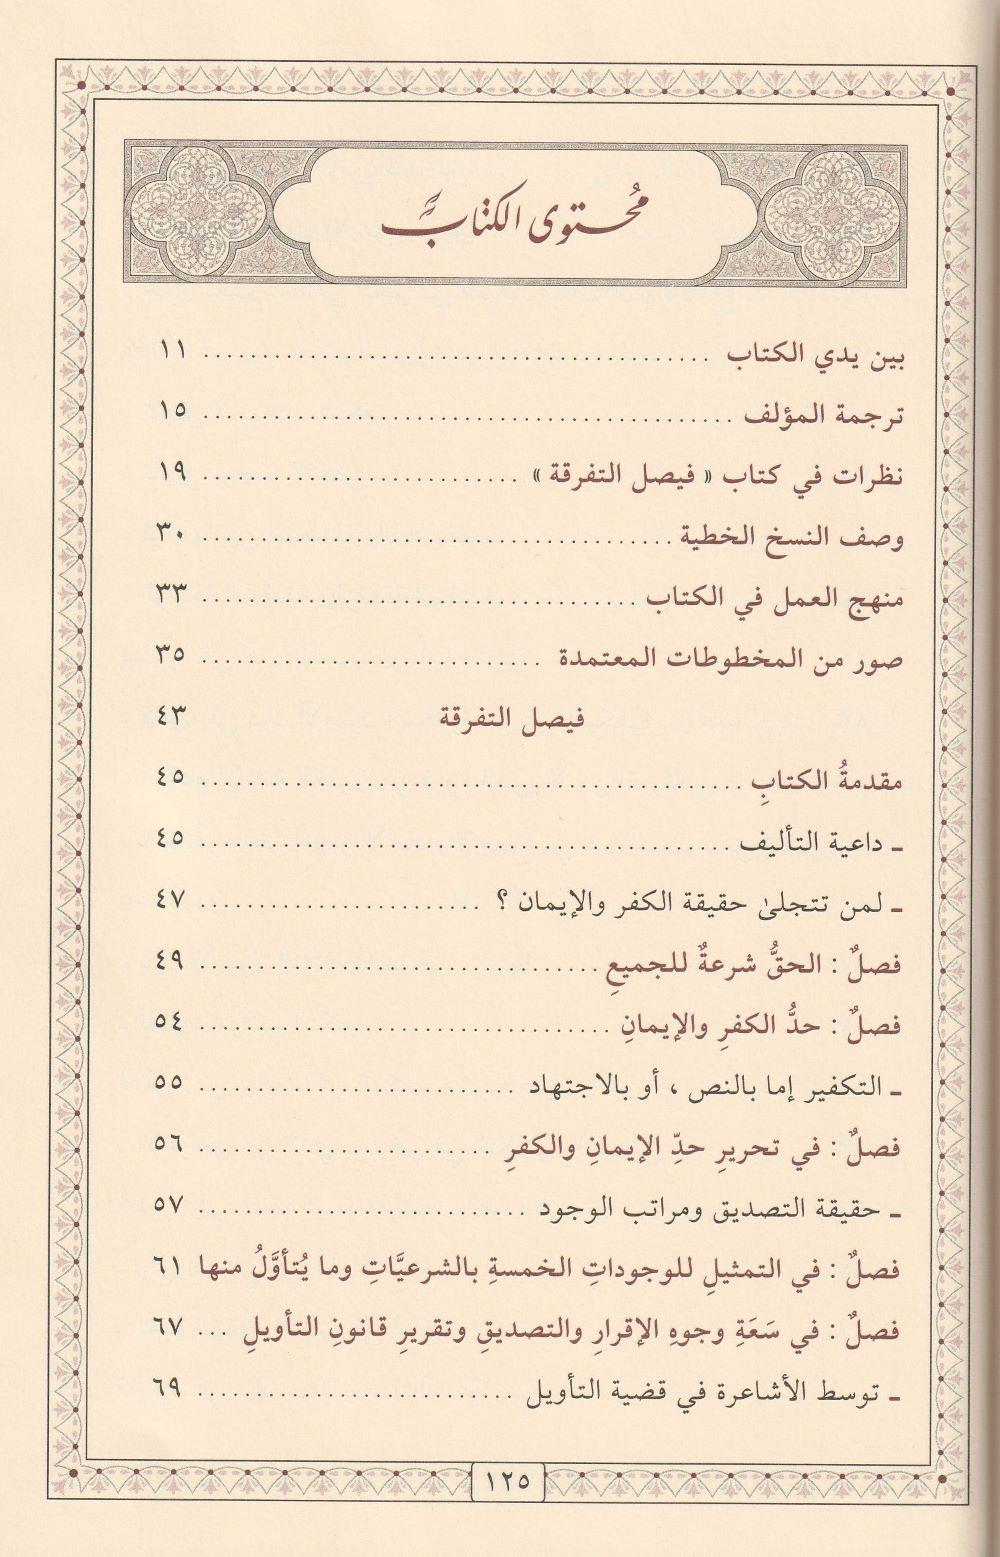 محتوى الكتاب
بين يدي الكتاب ........................................... ١١
ترجمة المؤلف ............................................. ١٥
نظرات في كتاب « فيصل التفرقة » ........................... ١٩
وصف النسخ الخطية ........................................ ٣٠
منهج العمل في الكتاب ..................................... ٣٣
صور من المخطوطات المعتمدة ............................. ٣٥
فيصل التفرقة ٤٣
مقدمةُ الكتابِ .............................................. ٤٥
ـ داعية التأليف ............................................. ٤٥
ـ لمن تتجلىٰ حقيقة الكفر والإيمان ؟ ........................ ٤٧
فصلٌ : الحقُّ شرعةٌ للجميعِ .................................. ٤٩
فصلٌ : حدُّ الكفرِ والإيمانِ ................................... ٥٤
ـ التكفير إما بالنص ، أو بالاجتهاد ........................... ٥٥
فصلٌ : في تحريرِ حدِّ الإيمانِ والكفرِ ......................... ٥٦
ـ حقيقة التصديق ومراتب الوجود ............................ ٥٧
فصلٌ : في التمثيلِ للوجوداتِ الخمسةِ بالشرعيَّاتِ وما يُتأوَّلُ منها ٦١
فصلٌ : في سَعَةِ وجوهِ الإقرارِ والتصديقِ وتقريرِ قانونِ التأويلِ ... ٦٧
ـ توسط الأشاعرة في قضية التأويل ........................... ٦٩
١٢٥